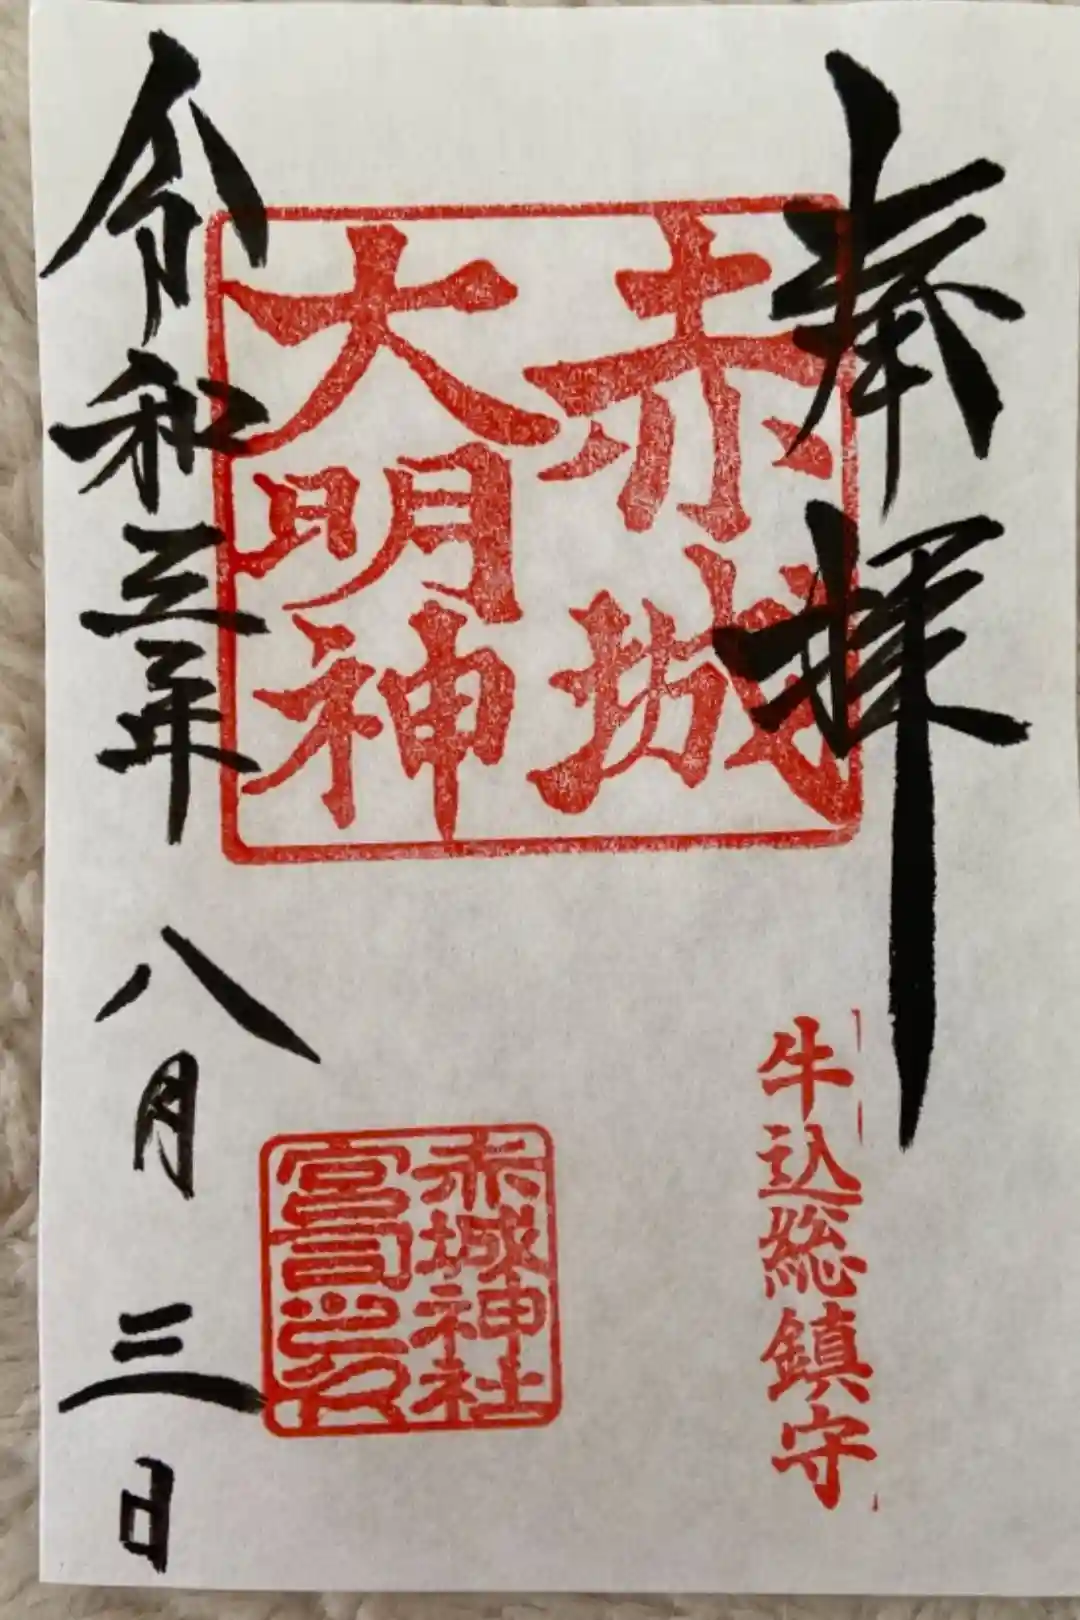 奉拝
赤城
大明神
牛込総鎮守
赤城神社
宮司之印
令和三年八月三日